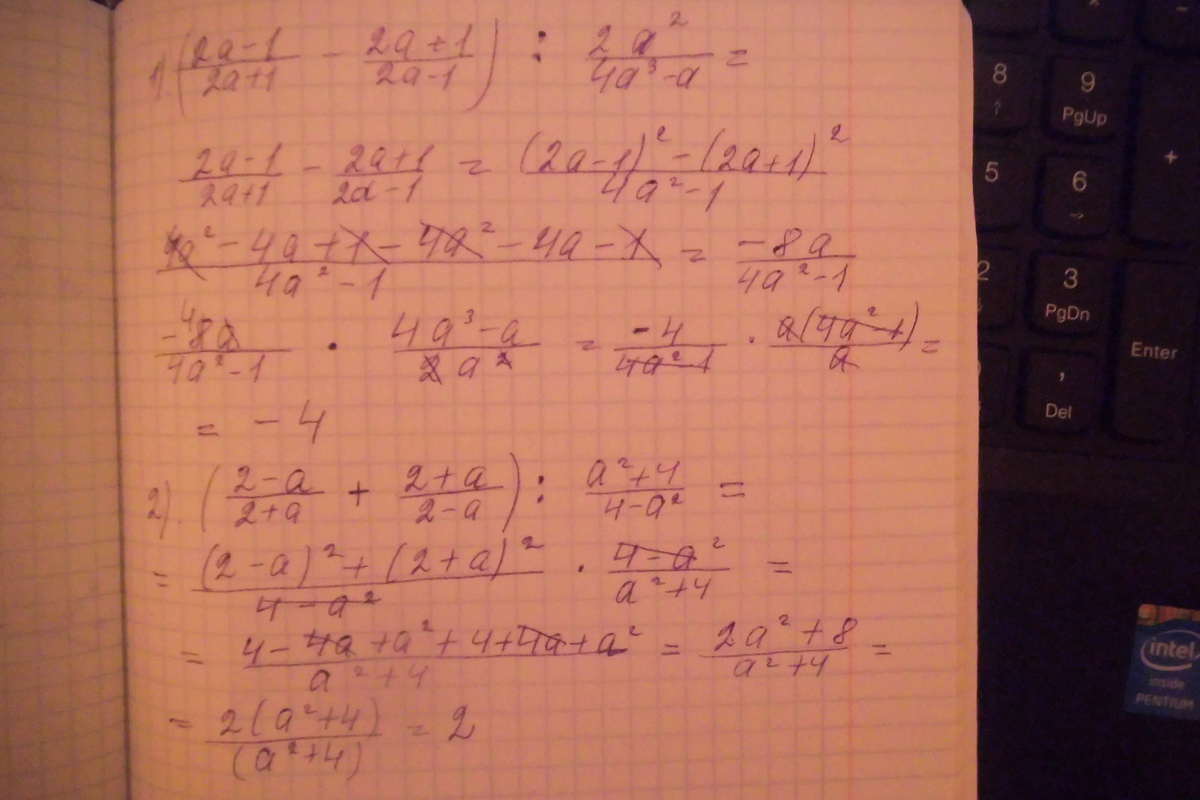 1). ((2a-1)/(2a+1) - (2a+1)/(2a-1)) : 2a²/(4a³-a) =
(2a-1)/(2a+1) - (2a+1)/(2a-1) = ((2a-1)² - (2a+1)²)/(4a²-1)
(4a² - 4a + 1 - 4a² - 4a - 1)/(4a²-1) = -8a/(4a²-1)
-⁴8a/(4a²-1) · (4a³-a)/(2a²) = -4/(4a²-1) · a(4a²-1)/a =
= -4
2). ((2-a)/(2+a) + (2+a)/(2-a)) : (a²+4)/(4-a²) =
= ((2-a)² + (2+a)²)/(4-a²) · (4-a²)/(a²+4) =
= (4-4a+a²+4+4a+a²)/(a²+4) = (2a²+8)/(a²+4) =
= 2(a²+4)/(a²+4) = 2
8
9
PgUp
+
5
6
2
3
PgDn
Enter
,
Del
intel
inside
PENTIUM